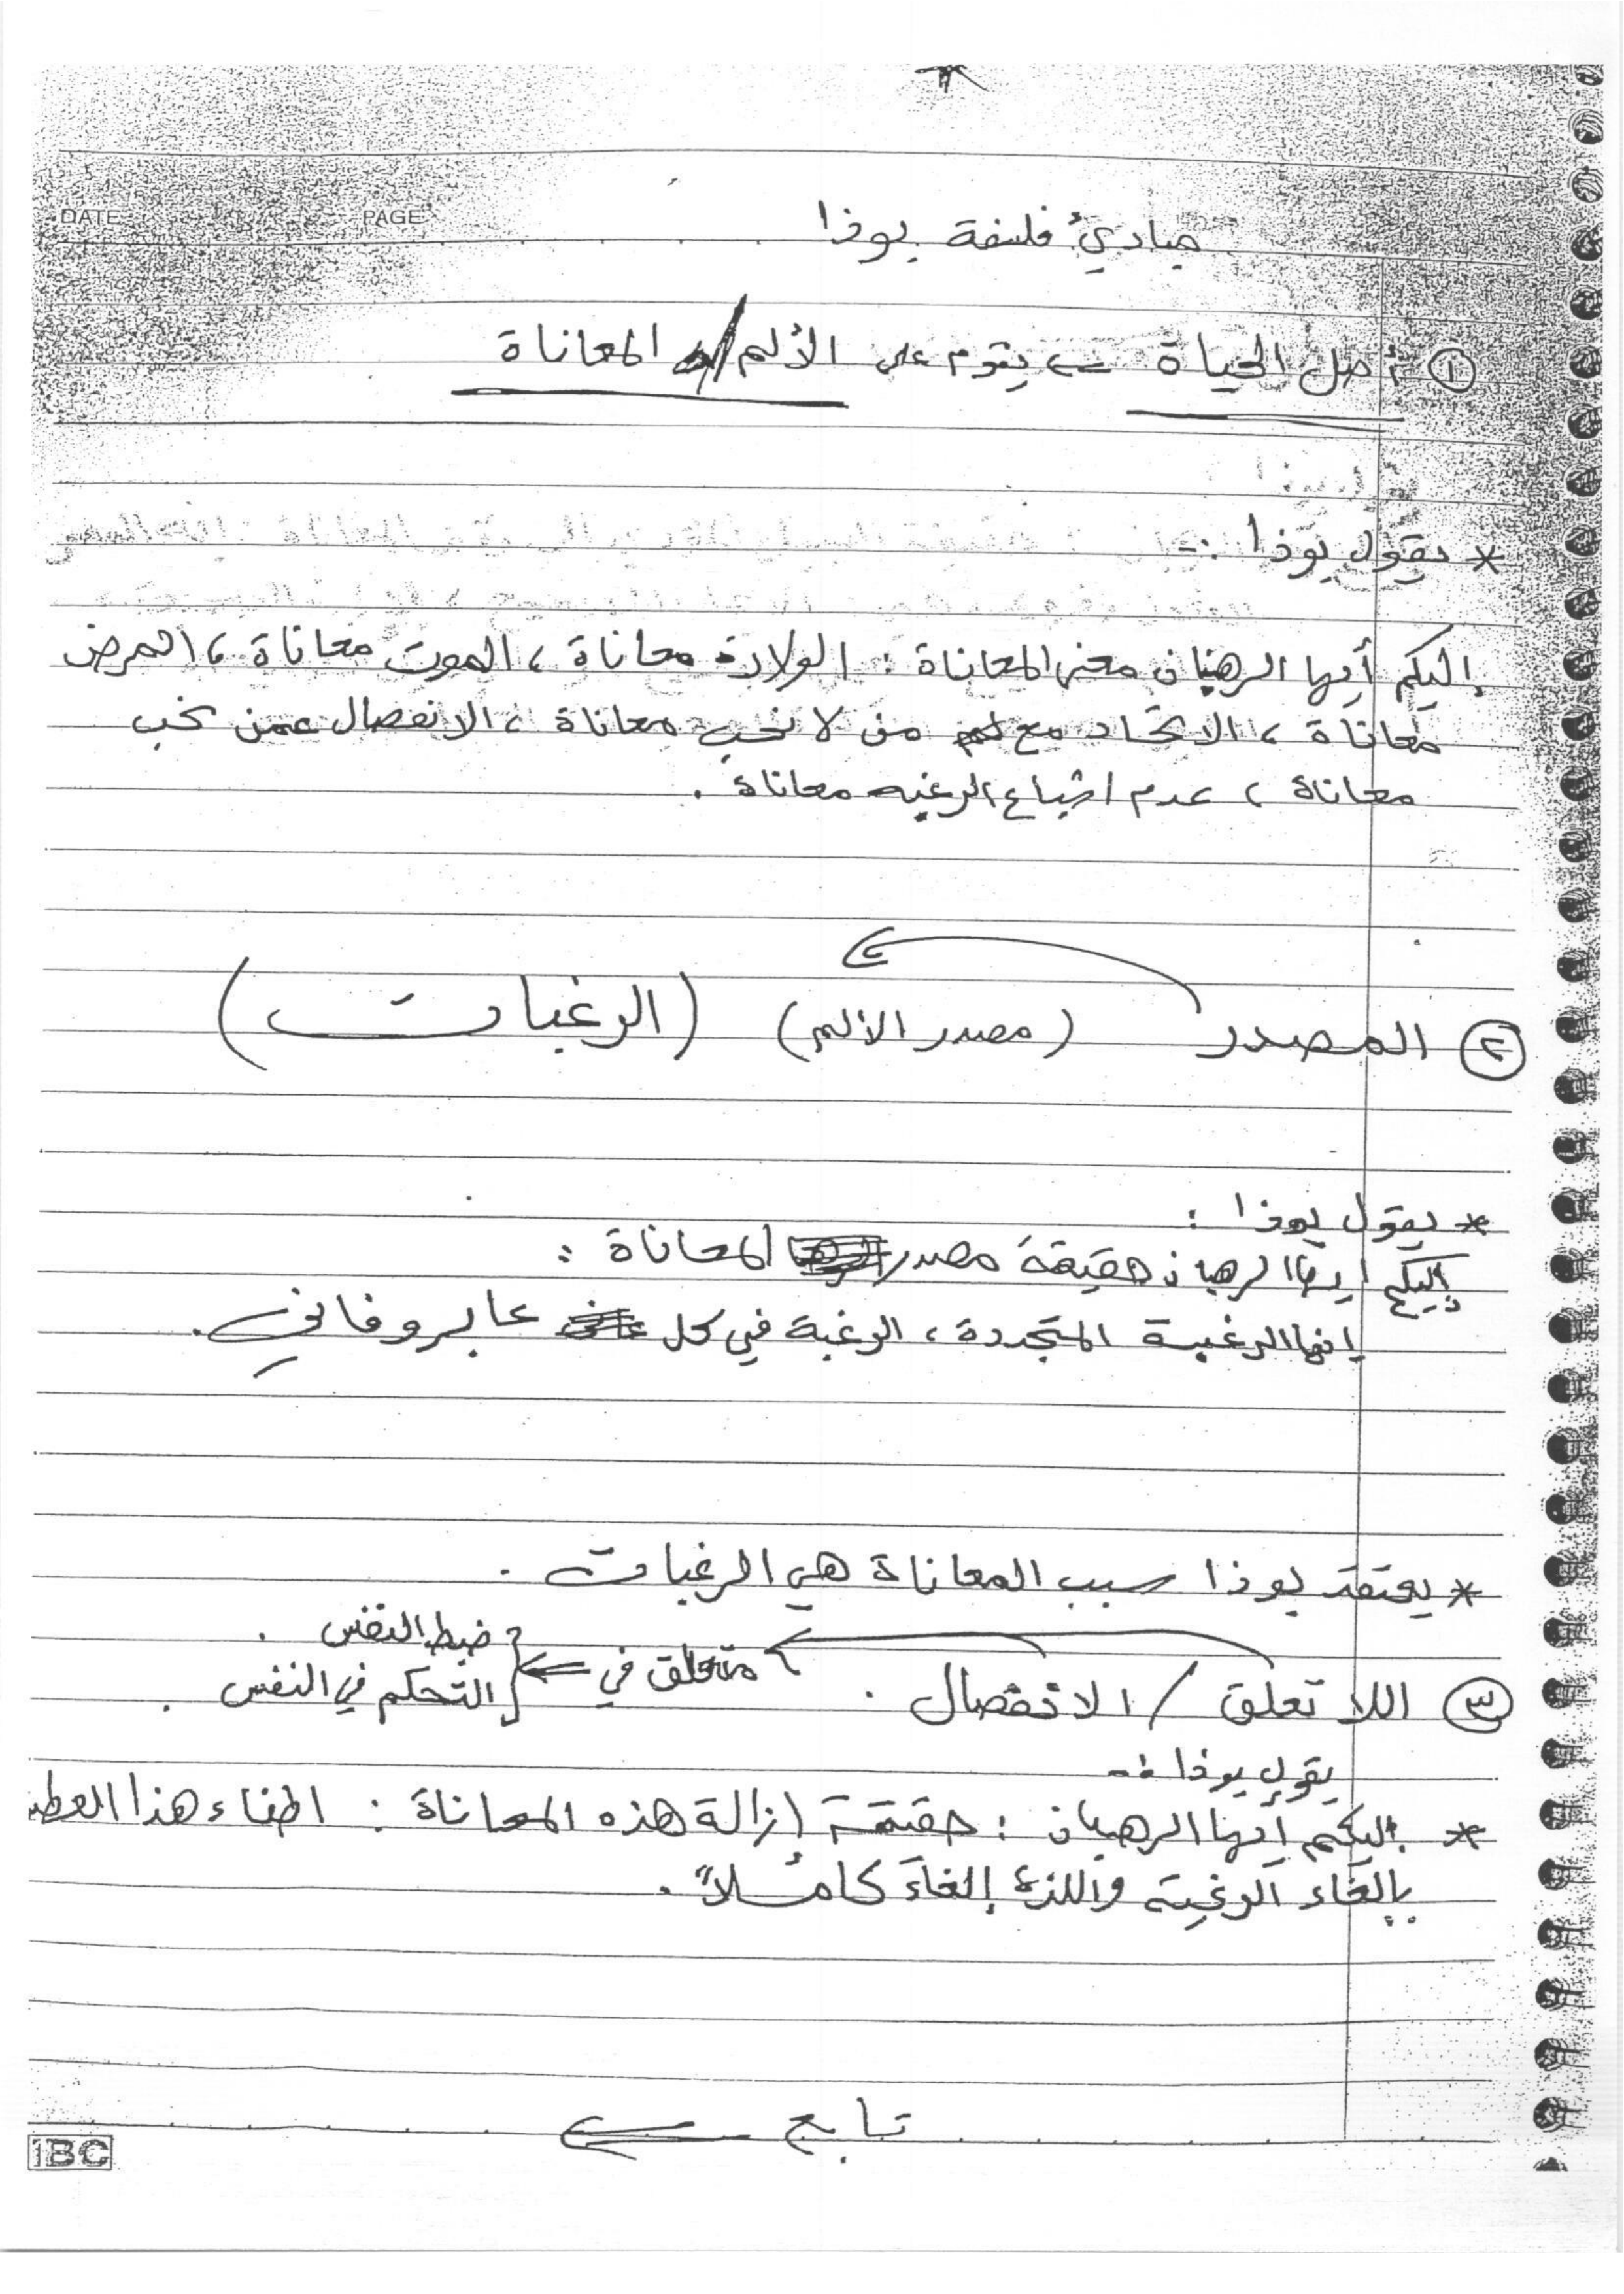 DATE PAGE
مبادئ فلسفة بوذا
① أصل الحياة ← يقوم على الألم / المعاناة
* يقول بوذا :-
إليكم أيها الرهبان معنى المعاناة : الولادة معاناة ، الموت معاناة ، المرض
معاناة ، الاتحاد مع من لا نحب معاناة ، الانفصال عمن نحب
معاناة ، عدم اشباع الرغبه معاناة .
② المصدر (مصدر الألم) (الرغبات)
* يقول بوذا :
إليكم ايها الرهبان حقيقة مصدر المعاناة :
إنها الرغبة المتجددة ، الرغبة في كل عابر وفاني .
* يعتقد بوذا سبب المعاناة هي الرغبات .
③ اللا تعلق / الانفصال . ← متعلق في ← { ضبط النفس .
التحكم في النفس .
يقول بوذا :-
* إليكم أيها الرهبان : حقيقة إزالة هذه المعاناة : اطفاء هذا
بإلغاء الرغبة واللذة إلغاءً كاملاً .
تابع ←
IBC